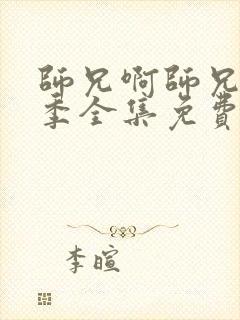 師兄啊師兄
季全集免費
李暄